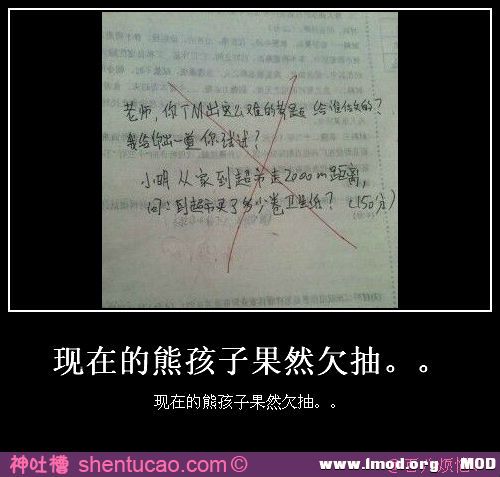 老师,你TM出这么难的给谁做的?
我给你出一道 你试试?
小明 从家到超市走2000m距离,
问:到超市买了多少卷卫生纸?(150分)
现在的熊孩子果然欠抽。。
现在的熊孩子果然欠抽。。
神吐槽 shentucao.com©
www.lmod.org MOD